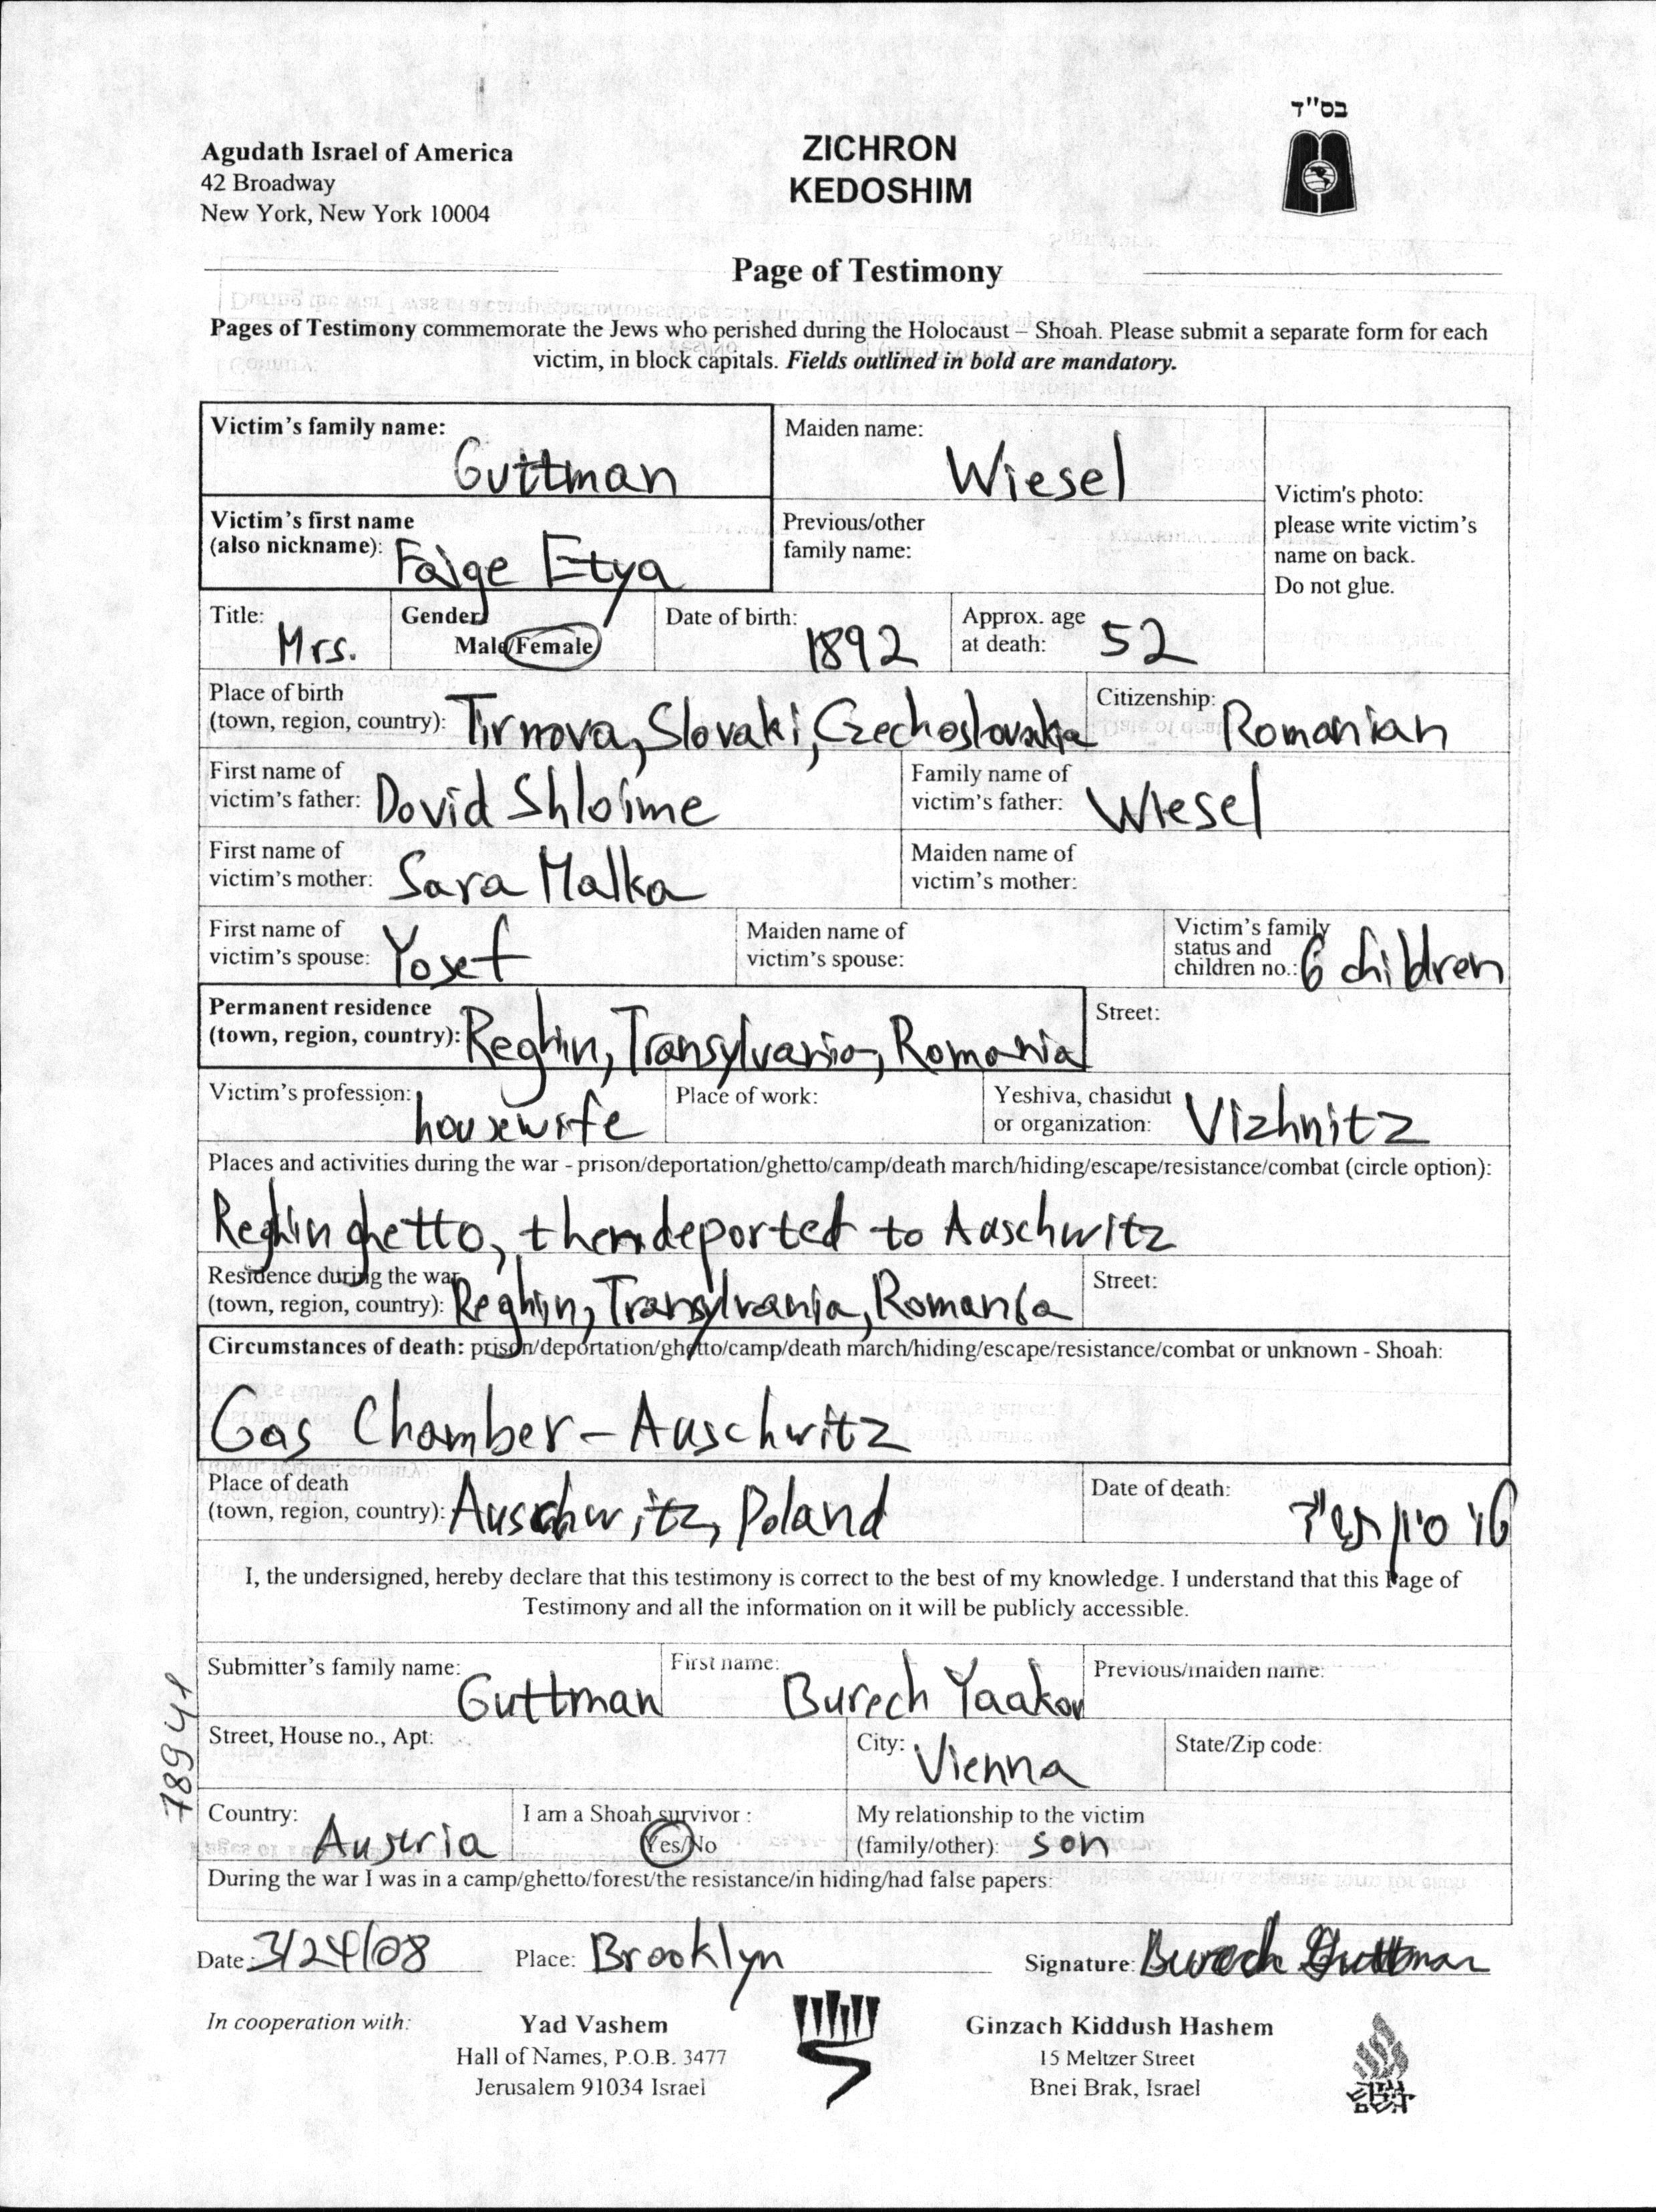 בס"ד
Agudath Israel of America
42 Broadway
New York, New York 10004
ZICHRON
KEDOSHIM
Page of Testimony
Pages of Testimony commemorate the Jews who perished during the Holocaust – Shoah. Please submit a separate form for each
victim, in block capitals. Fields outlined in bold are mandatory.
Victim's family name: Guttman
Maiden name: Wiesel
Victim's photo:
please write victim's
name on back.
Do not glue.
Victim's first name
(also nickname): Faige Etya
Previous/other
family name:
Title: Mrs.
Gender
Male/Female
Date of birth: 1892
Approx. age
at death: 52
Place of birth
(town, region, country): Tirnova, Slovaki, Czechoslovakia
Citizenship: Romanian
First name of
victim's father: Dovid Shloime
Family name of
victim's father: Wiesel
First name of
victim's mother: Sara Malka
Maiden name of
victim's mother:
First name of
victim's spouse: Yosef
Maiden name of
victim's spouse:
Victim's family
status and
children no.: 6 children
Permanent residence
(town, region, country): Reghin, Transylvania, Romania
Street:
Victim's profession: housewife
Place of work:
Yeshiva, chasidut
or organization: Vizhnitz
Places and activities during the war - prison/deportation/ghetto/camp/death march/hiding/escape/resistance/combat (circle option):
Reghin ghetto, then deported to Auschwitz
Residence during the war
(town, region, country): Reghin, Transylvania, Romania
Street:
Circumstances of death: prison/deportation/ghetto/camp/death march/hiding/escape/resistance/combat or unknown - Shoah:
Gas Chamber - Auschwitz
Place of death
(town, region, country): Auschwitz, Poland
Date of death: סיון תש"ד
I, the undersigned, hereby declare that this testimony is correct to the best of my knowledge. I understand that this Page of
Testimony and all the information on it will be publicly accessible.
Submitter's family name: Guttman
First name: Burech Yaakov
Previous/maiden name:
Street, House no., Apt:
City: Vienna
State/Zip code:
78941
Country: Austria
I am a Shoah survivor :
Yes/No
My relationship to the victim
(family/other): son
During the war I was in a camp/ghetto/forest/the resistance/in hiding/had false papers:
Date: 3/24/08
Place: Brooklyn
Signature: Burech Guttman
In cooperation with:
Yad Vashem
Hall of Names, P.O.B. 3477
Jerusalem 91034 Israel
Ginzach Kiddush Hashem
15 Meltzer Street
Bnei Brak, Israel